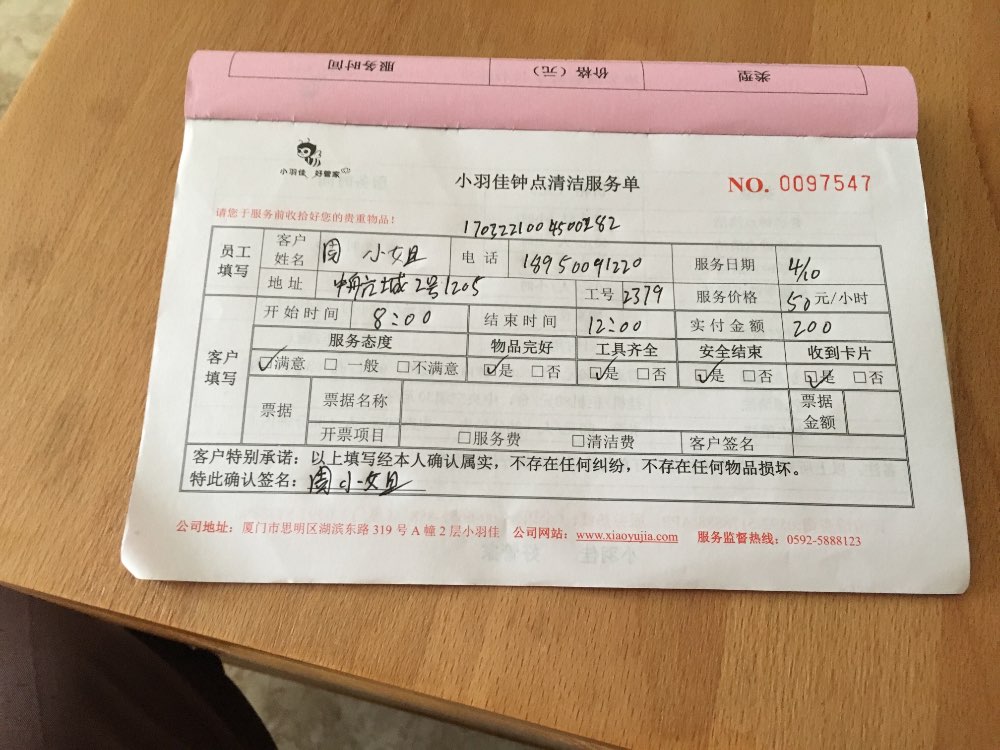 服务时间 价格（元） 类型
小羽佳 好管家
小羽佳钟点清洁服务单 NO. 0097547
请您于服务前收拾好您的贵重物品！
员工填写 客户姓名 周 小姐 电话 18950091220 服务日期 4/10
地址 2号1205 工号 2379 服务价格 50 元/小时
客户填写 开始时间 8:00 结束时间 12:00 实付金额 200
服务态度 物品完好 工具齐全 安全结束 收到卡片
☑满意 □ 一般 □不满意 ☑是 □否 ☑是 □否 ☑是 □否 ☑是 □否
票据 票据名称 票据金额
开票项目 □服务费 □清洁费 客户签名
客户特别承诺：以上填写经本人确认属实，不存在任何纠纷，不存在任何物品损坏。
特此确认签名：周小姐
公司地址：厦门市思明区湖滨东路 319 号 A 幢 2 层小羽佳 公司网站：www.xiaoyujia.com 服务监督热线：0592-5888123